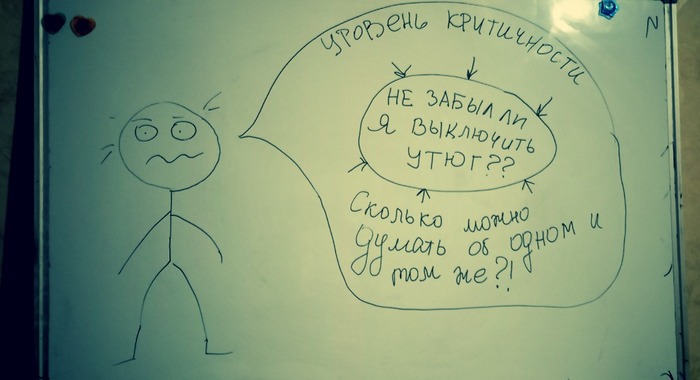 N
УРОВЕНЬ КРИТИЧНОСТИ
НЕ ЗАБЫЛ ЛИ
Я ВЫКЛЮЧИТЬ
УТЮГ??
Сколько можно
думать об одном и
том же?!